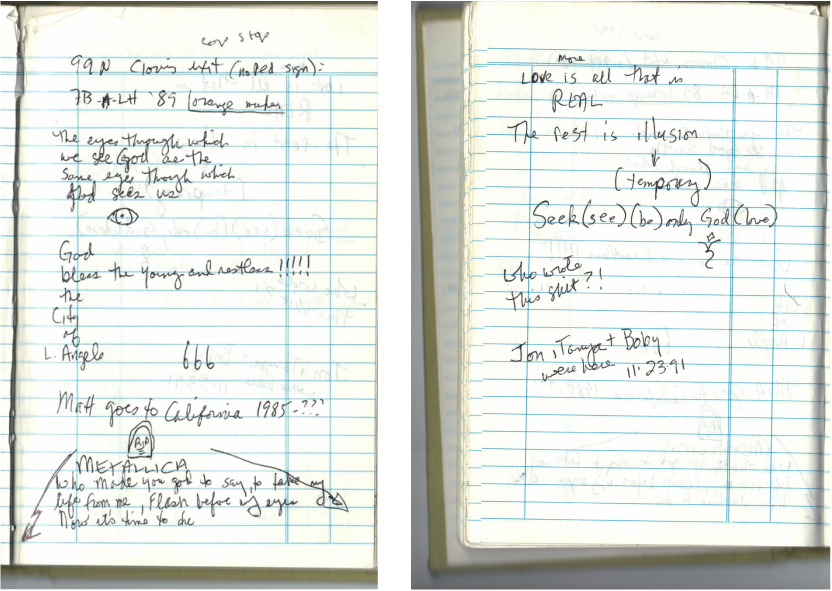 cop stop
99 N Clovis left (no ped sign):
7B-A-LH '89 orange marker
The eyes through which
we see God are the
same eyes though which
God sees us
God
bless the young and restless!!!!!
the
City
of
L. Angels
666
Matt goes to California 1985-???
RIP
METALLICA
Who made you god to say, to take my
life from me, Flash before my eyes
Now it's time to die
more
Love is all that is
REAL
The rest is illusion
(temporary)
Seek (see) (be) only God (love)
who wrote
this shit?!
Jon, Tanya + Boby
were here 11.23.91